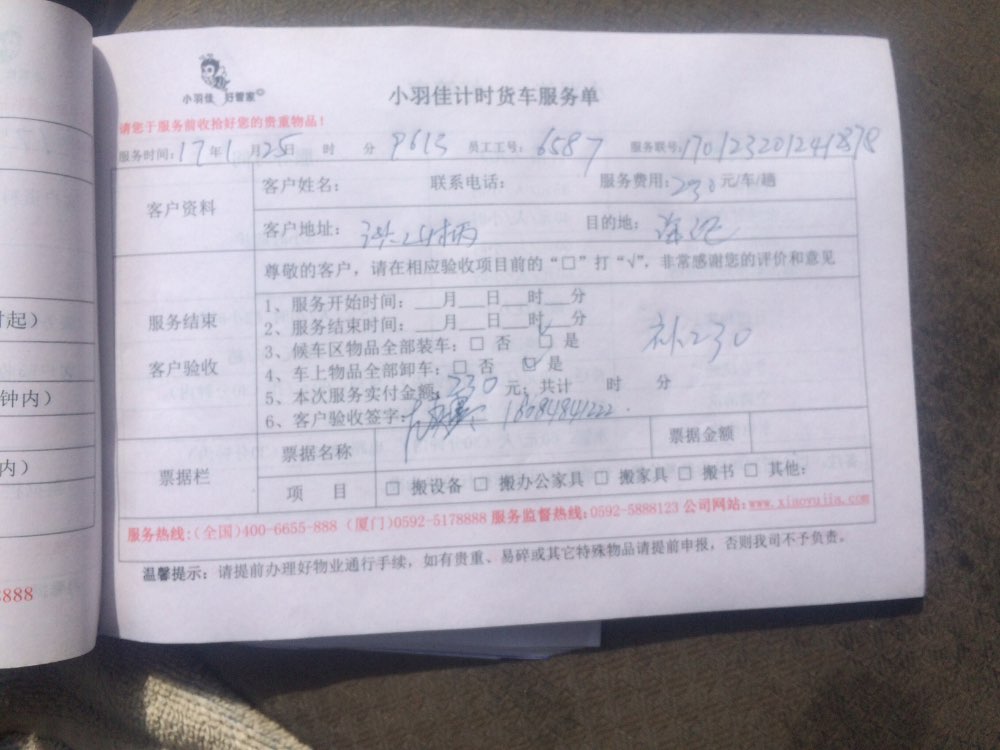 小羽佳 好管家
小羽佳计时货车服务单
请您于服务前收拾好您的贵重物品！
服务时间：17年1月25日 时 分 P613 员工工号：6587 服务联号：1701232012418 78
客户资料
客户姓名： 联系电话： 服务费用：230元/车/趟
客户地址： 目的地：
尊敬的客户，请在相应验收项目前的“□”打“√”，非常感谢您的评价和意见
服务结束
客户验收
1、服务开始时间：___月___日___时___分
2、服务结束时间：___月___日___时___分
3、候车区物品全部装车：□ 否 ☑ 是
补230
4、车上物品全部卸车：□ 否 ☑ 是
5、本次服务实付金额：230元；共计 时 分
6、客户验收签字：
票据栏
票据名称 票据金额
项 目 □ 搬设备 □ 搬办公家具 □ 搬家具 □ 搬书 □ 其他：
服务热线：（全国）400-6655-888（厦门）0592-5178888 服务监督热线：0592-5888123 公司网站：www.xiaoyujia.com
温馨提示：请提前办理好物业通行手续，如有贵重、易碎或其它特殊物品请提前申报，否则我司不予负责。
时起）
钟内）
内）
8888